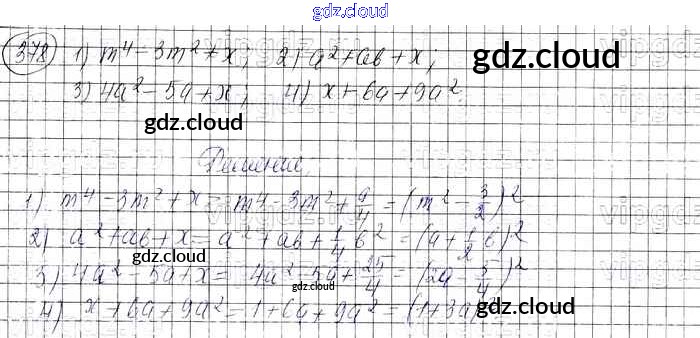 gdz.cloud
378 1) m⁴ - 3m² + x; 2) a² + ab + x;
gdz.cloud
3) 4a² - 5a + x; 4) x + 6a + 9a².
gdz.cloud gdz.cloud
Решение.
1) m⁴ - 3m² + x = m⁴ - 3m² + 9/4 = (m² - 3/2)²
2) a² + ab + x = a² + ab + 1/4 b² = (a + 1/2 b)²
gdz.cloud
3) 4a² - 5a + x = 4a² - 5a + 25/4 = (2a - 5/4)²
gdz.cloud
4) x + 6a + 9a² = 1 + 6a + 9a² = (1 + 3a)
gdz.cloud